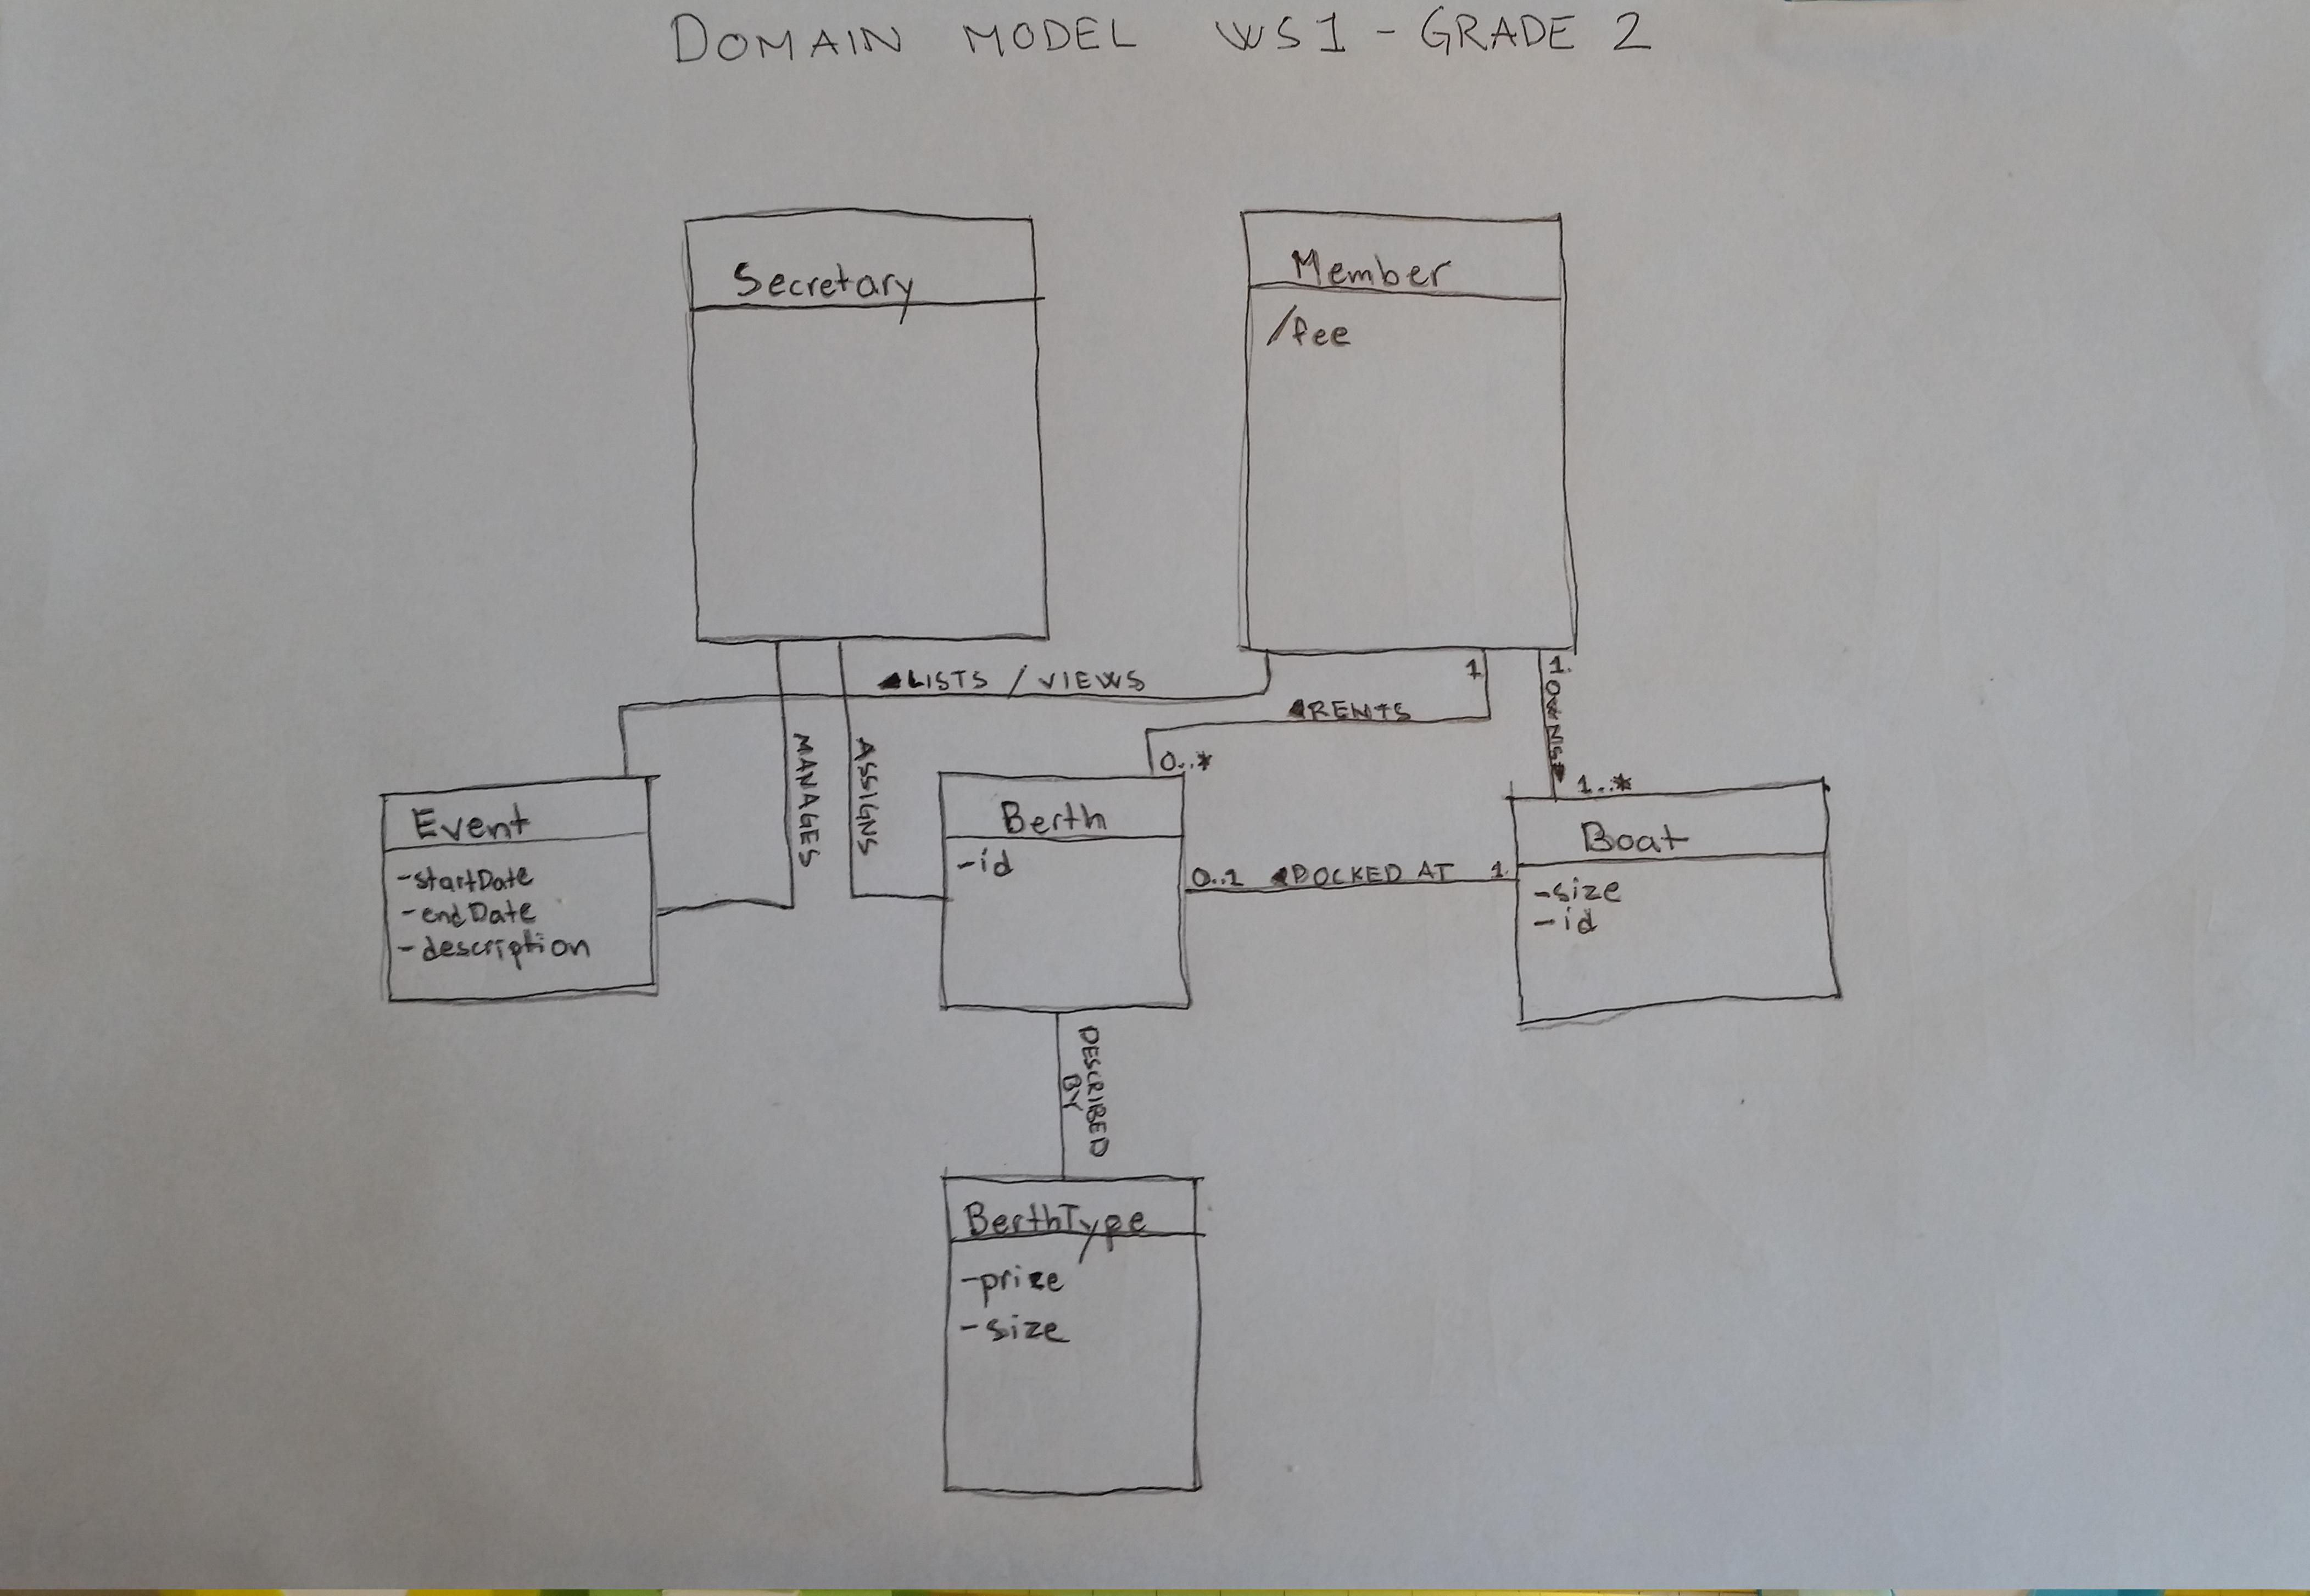 DOMAIN MODEL WS1 - GRADE 2
Secretary
Member
/fee
LISTS / VIEWS
1
1.
RENTS
OWNS
MANAGES
ASSIGNS
0..*
1..*
Event
-startDate
-endDate
-description
Berth
-id
0..1 DOCKED AT 1.
Boat
-size
-id
DESCRIBED
BY
BerthType
-prize
-size